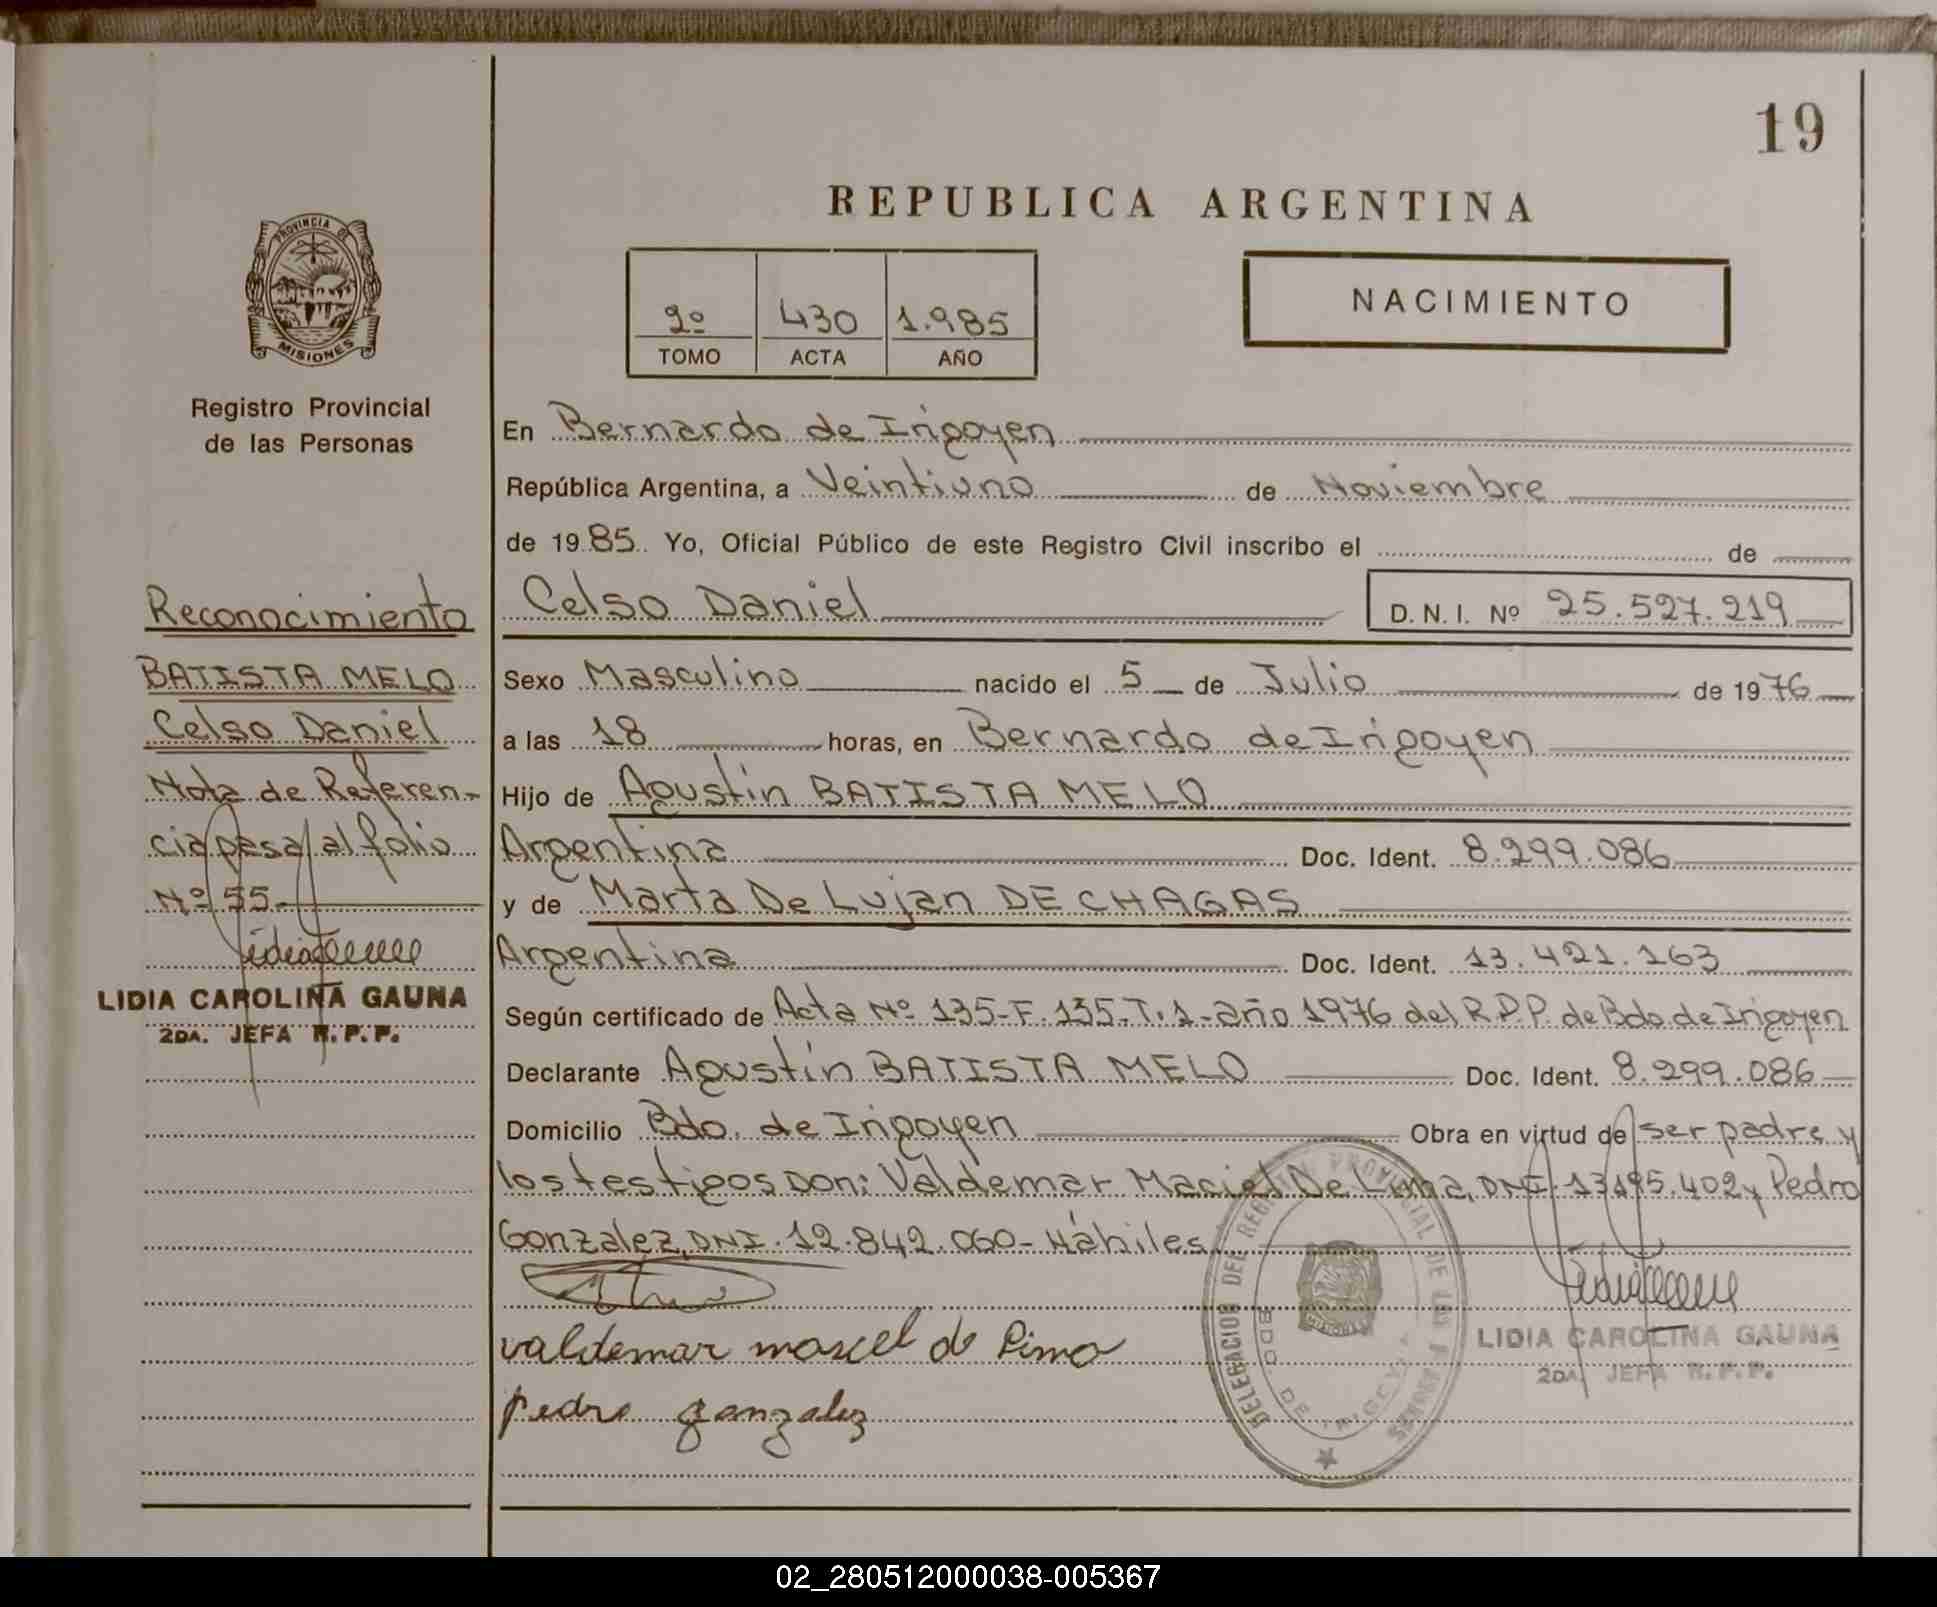 19
REPUBLICA ARGENTINA
PROVINCIA DE
MISIONES
Registro Provincial
de las Personas
2º 430 1.985
TOMO ACTA AÑO
NACIMIENTO
En Bernardo de Irigoyen
República Argentina, a Veintiuno de Noviembre
de 1985. Yo, Oficial Público de este Registro Civil inscribo el de
Celso Daniel D.N.I. Nº 25.527.219
Sexo Masculino nacido el 5 de Julio de 1976
a las 18 horas, en Bernardo de Irigoyen
Hijo de Agustín BATISTA MELO
Argentina Doc. Ident. 8.299.086
y de Marta De Lujan DE CHAGAS
Argentina Doc. Ident. 13.421.163
Según certificado de Acta Nº 135-F.135-T.1-año 1976 del R.P.P. de Bdo de Irigoyen
Declarante Agustín BATISTA MELO Doc. Ident. 8.299.086
Domicilio Bdo. de Irigoyen Obra en virtud de ser padre y
los testigos Don: Valdemar Maciel De Lima, DNI. y Pedro
Gonzalez, DNI. 12.842.060- Hábiles
valdemar de Lima
pedro gonzalez
DELEGACION DEL REGISTRO PROVINCIAL DE LAS PERSONAS
BDO. DE IRIGOYEN
MISIONES
LIDIA CAROLINA GAUNA
2DA. JEFA R.P.P.
Reconocimiento
BATISTA MELO
Celso Daniel
Nota de Referen-
cia pasa al folio
Nº 55-
LIDIA CAROLINA GAUNA
2DA. JEFA R.P.P.
02_280512000038-005367